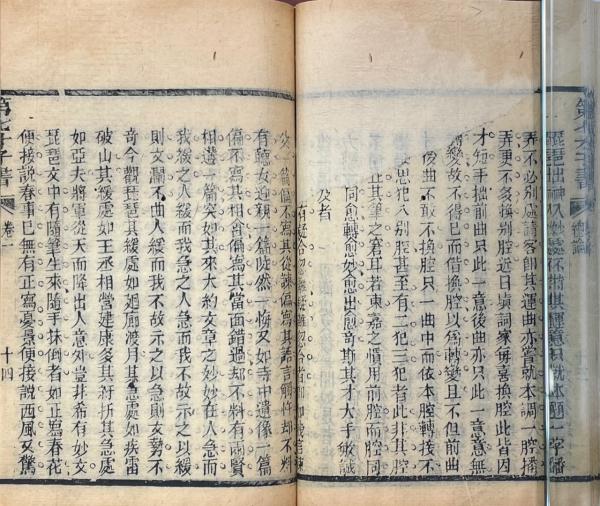 第七才子書
琵琶出神入妙處不將其運意只就本題一字播
弄不必別處請客卽其運曲亦寧就本調一腔播
弄更不多換別腔近日塡詞家每喜換腔此皆因
才短手拙前曲只此一意後曲亦只此一意意無
變故不得已而借換腔以爲轉變且不但前曲
後曲不敢不換腔只一曲中而依本腔轉拽不
思犯入別腔甚至有二犯三犯者此非其腔
止其筆之窘耳若東嘉之慣用前腔而腔同
同愈轉愈妙愈出愈奇斯其才大手敏誠
及者
有疑合勿離疑離勿合者如
父一篇偏不寫其從諫偏寫其語言觸忤却不料
有聽女迎親一篇陡然一悔又如寺中遺像一篇
偏不寫其相會偏寫其當面錯過却不料有兩賢
相遘一篇突如其來大約文章之妙妙在人急而
我緩之人緩而我急之人急而我不故示之以緩
則文瀾不曲人緩而我不故示之以急則文勢不
奇今觀琵琶其緩處如迴廊渡月其急處如疾雷
破山其緩處如王丞相營建康多其紆折其急處
如亞夫將軍從天而降出人意外豈非希有妙文
琵琶文中有隨筆生來隨手抹倒者如正寫春花
便接說春事已無有正寫憂景便接說西風又驚
第七才子書
卷一
十四